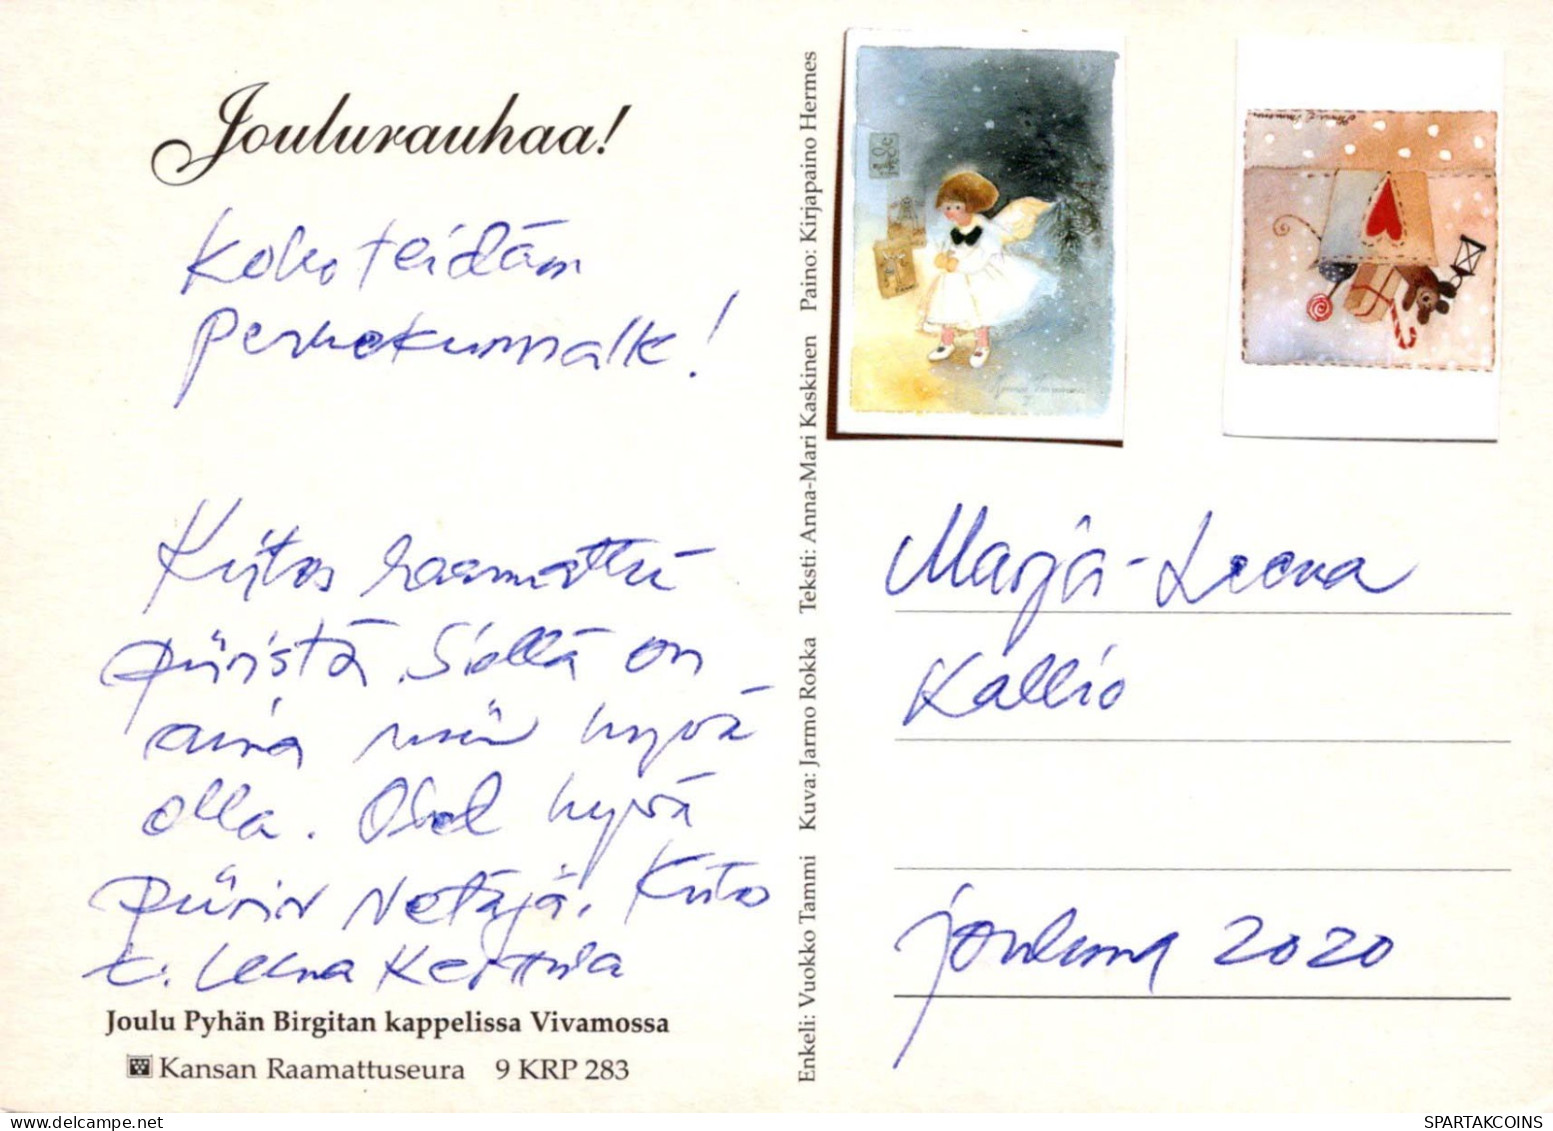 Joulurauhaa!
Koko teidän
perhekunnalle!
Kiitos raamattu
piiristä. Siellä on
aina niin hyvä
olla. Olet hyvä
piirin vetäjä. Kiitos
t. Leena
Joulu Pyhän Birgitan kappelissa Vivamossa
Kansan Raamattuseura 9 KRP 283
Enkeli: Vuokko Tammi Kuva: Jarmo Rokka Teksti: Anna-Mari Kaskinen Paino: Kirjapaino Hermes
Marja-Leena
Kallio
jouluna 2020
SPARTAKCOINS